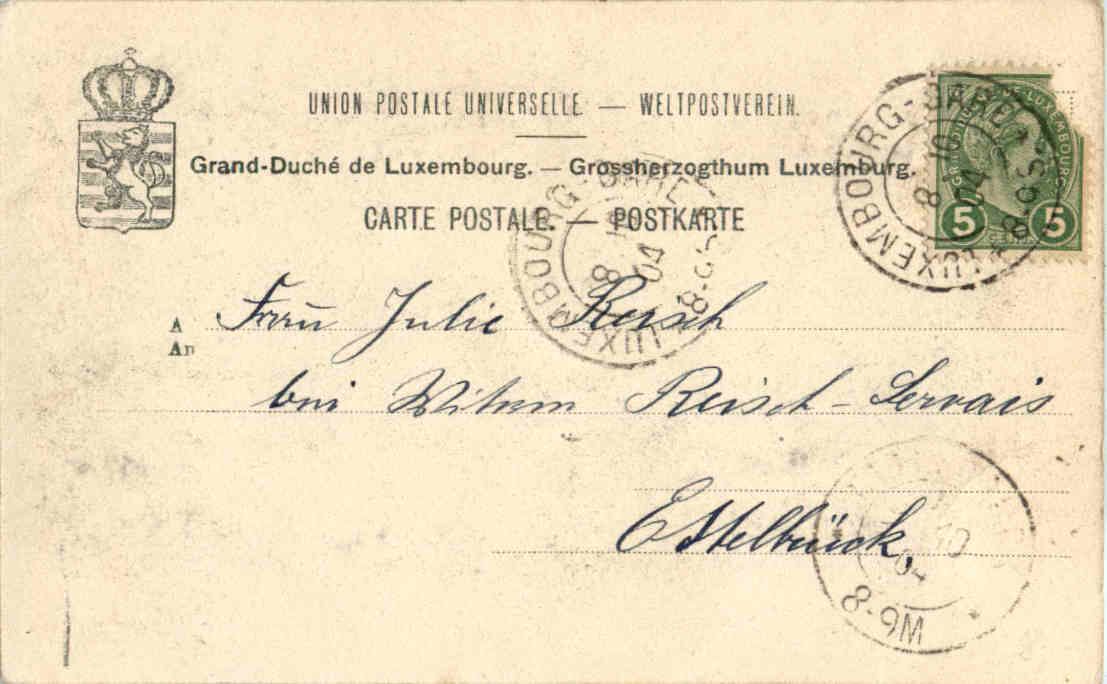 UNION POSTALE UNIVERSELLE. — WELTPOSTVEREIN.
Grand-Duché de Luxembourg. — Grossherzogthum Luxemburg.
CARTE POSTALE. — POSTKARTE
LUXEMBOURG-GARE
8 10 04
8-9S
5 5
LUXEMBOURG-GARE
8 10 04
8-9S
A Frau Julie Reisch
An
bei Witwe Reisch-Servais
Ettelbrück,
10
04
8-9M